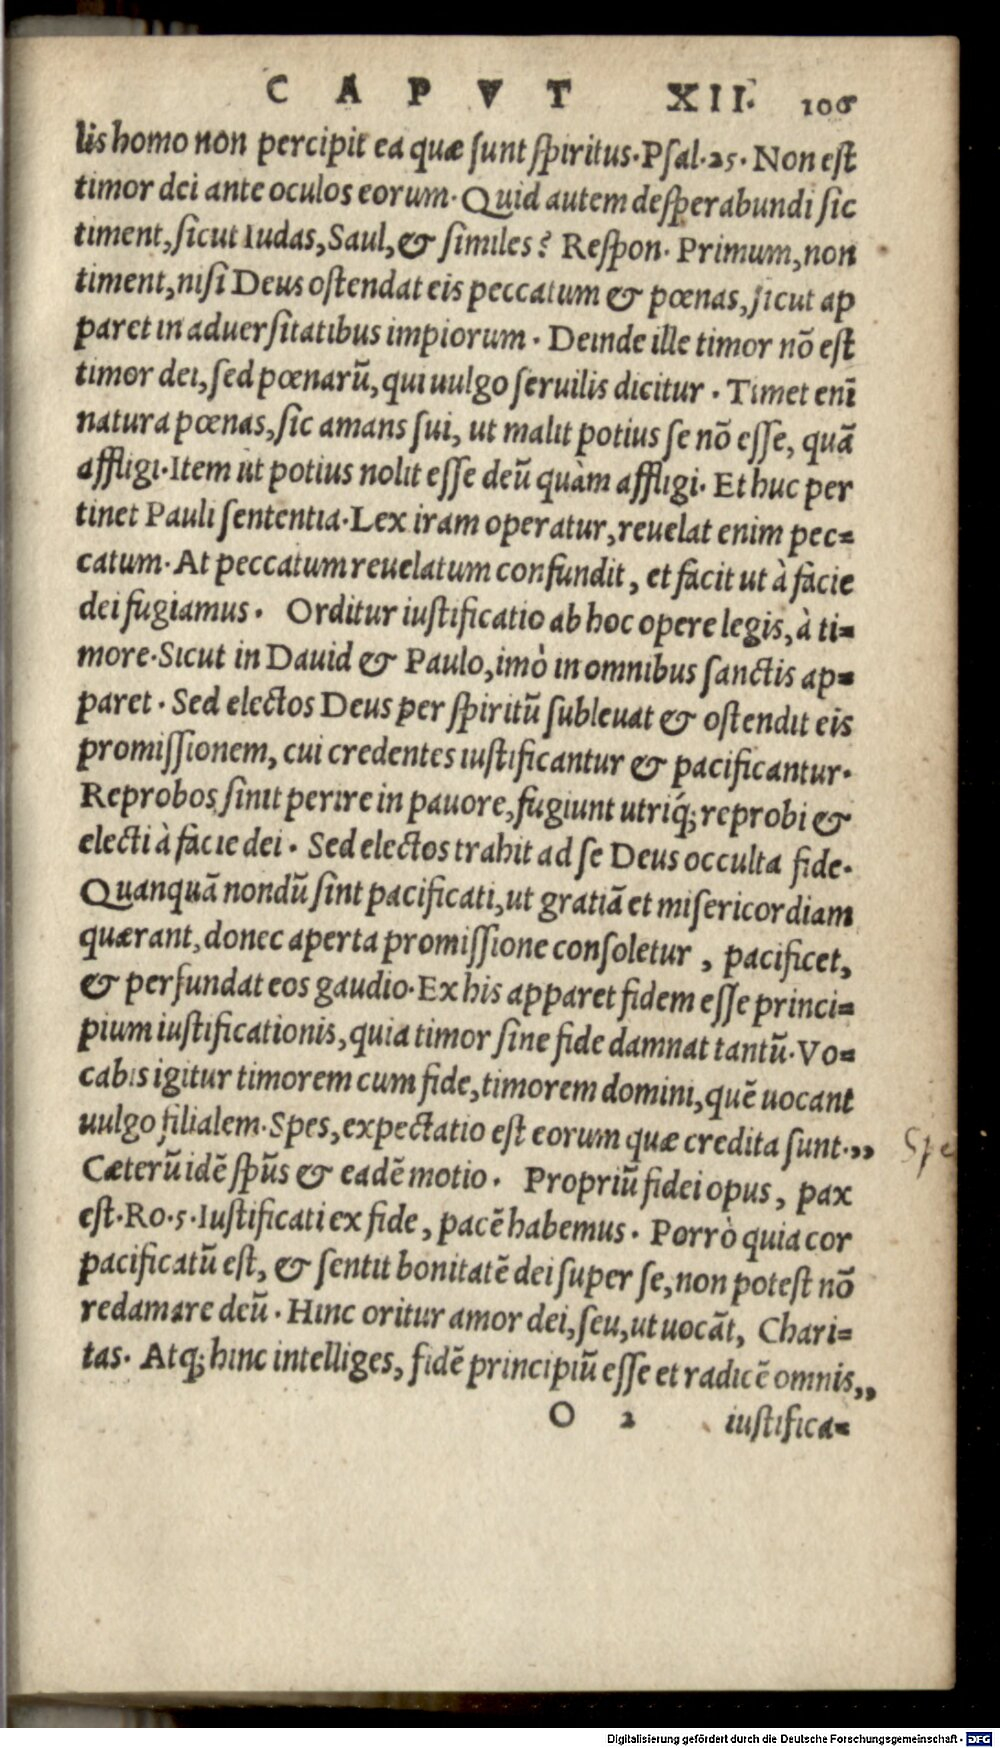 CAPVT XII. 106
lis homo non percipit ea quæ ſunt ſpiritus. Pſal. 25. Non eſt
timor dei ante oculos eorum. Quid autem deſperabundi ſic
timent, ſicut Iudas, Saul, & ſimiles? Reſpon. Primum, non
timent, niſi Deus oſtendat eis peccatum & pœnas, ſicut ap
paret in aduerſitatibus impiorum. Deinde ille timor nõ eſt
timor dei, ſed pœnarũ, qui uulgo ſeruilis dicitur. Timet enĩ
natura pœnas, ſic amans ſui, ut malit potius ſe nõ eſſe, quã
affligi. Item ut potius nolit eſſe deũ quàm affligi. Et huc per
tinet Pauli ſententia. Lex iram operatur, reuelat enim pec=
catum. At peccatum reuelatum confundit, et facit ut à facie
dei fugiamus. Orditur iuſtificatio ab hoc opere legis, à ti=
more. Sicut in Dauid & Paulo, imò in omnibus ſanctis ap=
paret. Sed electos Deus per ſpiritũ ſubleuat & oſtendit eis
promiſſionem, cui credentes iuſtificantur & pacificantur.
Reprobos ſinit perire in pauore, fugiunt utriq́; reprobi &
electi à facie dei. Sed electos trahit ad ſe Deus occulta fide.
Quanquã nondũ ſint pacificati, ut gratiã et miſericordiam
quærant, donec aperta promiſſione conſoletur, pacificet,
& perfundat eos gaudio. Ex his apparet fidem eſſe princi=
pium iuſtificationis, quia timor ſine fide damnat tantũ. Vo=
cabis igitur timorem cum fide, timorem domini, quẽ uocant
uulgo filialem. Spes, expectatio eſt eorum quæ credita ſunt. ,, Spe
Cæterũ idẽ ſpũs & eadẽ motio. Propriũ fidei opus, pax
eſt. Ro. 5. Iuſtificati ex fide, pacẽ habemus. Porrò quia cor
pacificatũ eſt, & ſentit bonitatẽ dei ſuper ſe, non poteſt nõ
redamare deũ. Hinc oritur amor dei, ſeu, ut uocãt, Chari=
tas. Atq; hinc intelliges, fidẽ principiũ eſſe et radicẽ omnis ,,
O 2 iuſtifica=
Digitalisierung gefördert durch die Deutsche Forschungsgemeinschaft - DFG